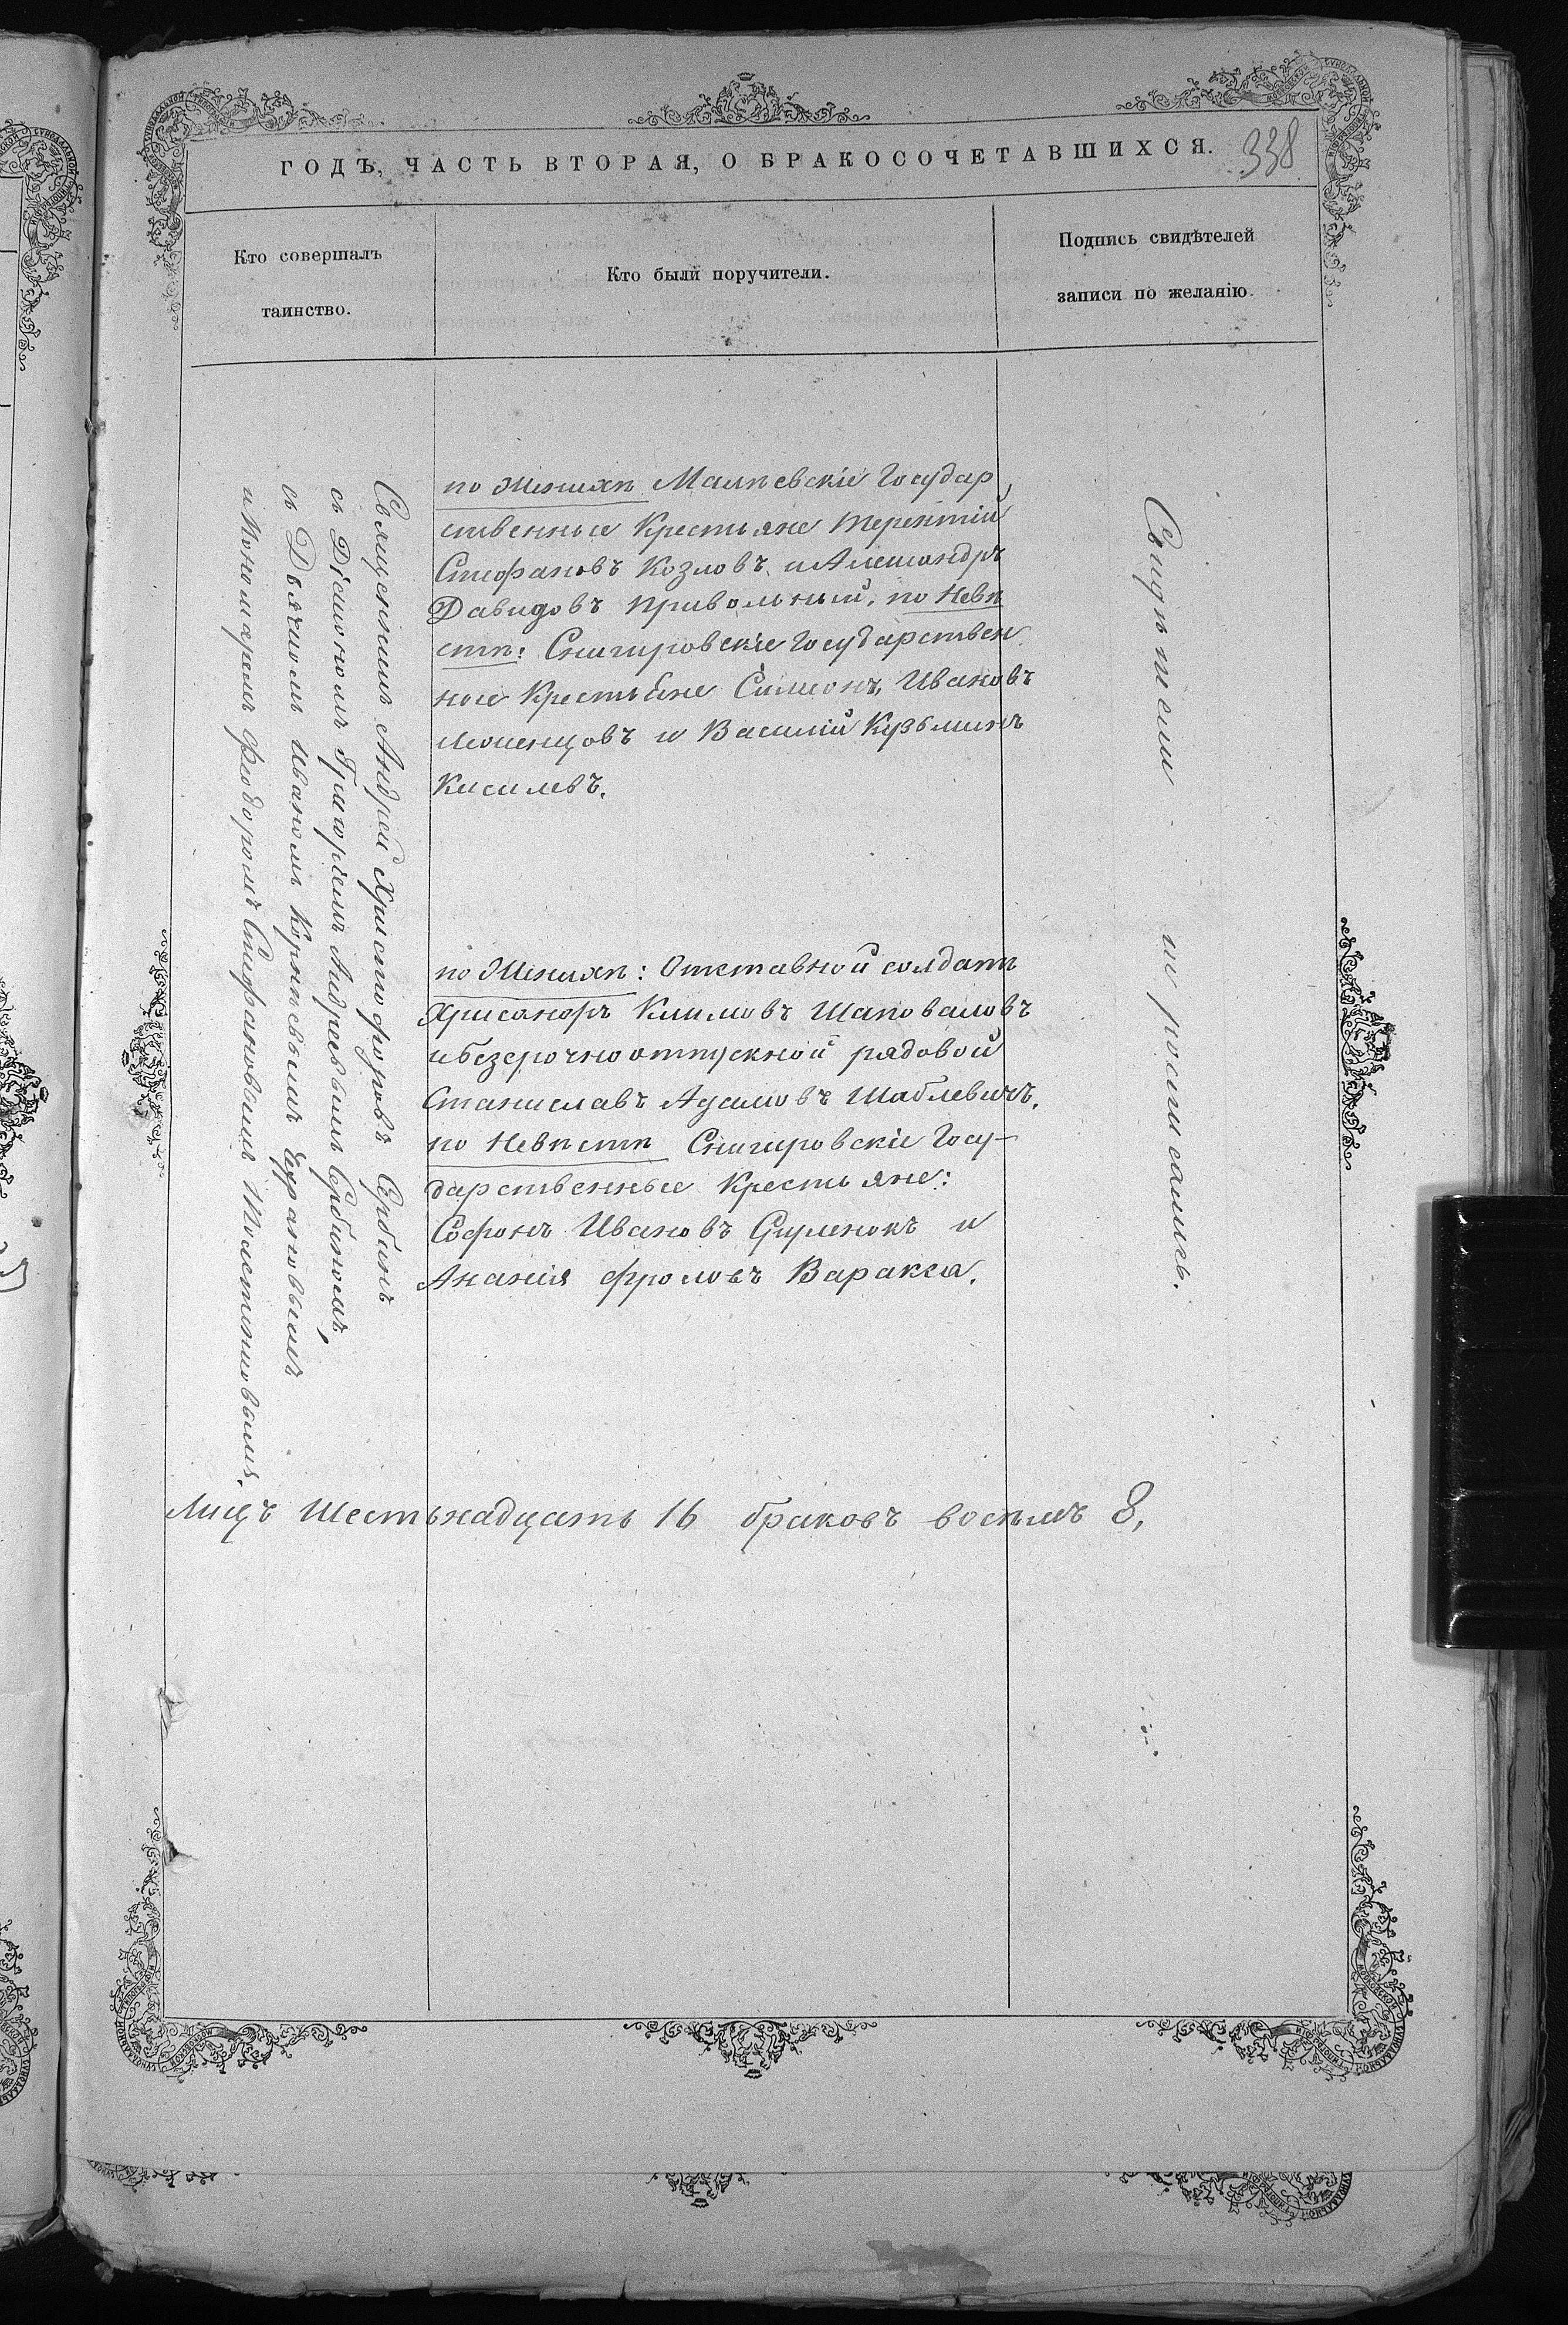 ГОДЪ, ЧАСТЬ ВТОРАЯ, О БРАКОСОЧЕТАВШИХСЯ.
338
Кто совершалъ
таинство.
Кто были поручители.
Подпись свидѣтелей
записи по желанію.
Священникъ Андрей Христофоровъ Сербинъ
съ Діакономъ Григоріемъ Андреевымъ Сербиномъ,
съ Дьячкомъ Иваномъ Корнѣевымъ
и Пономаремъ Феодоромъ Стефановымъ
по Женихѣ Малѣевскіе Государ
ственные Крестьяне Терентій
Стефановъ Козловъ и Александръ
Давидовъ Привольный. по Невѣ
стѣ: Снигировскіе Государствен
ные Крестьяне Симеонъ Ивановъ
и Василій Кузьминъ
Кисилевъ.
по Женихѣ: Отставной солдатъ
Хрисанфъ Климовъ Шаповаловъ
и безсрочноотпускной рядовой
Станиславъ Адамовъ Шаблевичъ.
по Невѣстѣ Снигировскіе Госу-
дарственные Крестьяне:
Софонъ Ивановъ и
Ананія ФроловъВаракса.
Свидѣтели не росписались.
Лицъ Шестьнадцать 16 браковъ восѣмъ 8,